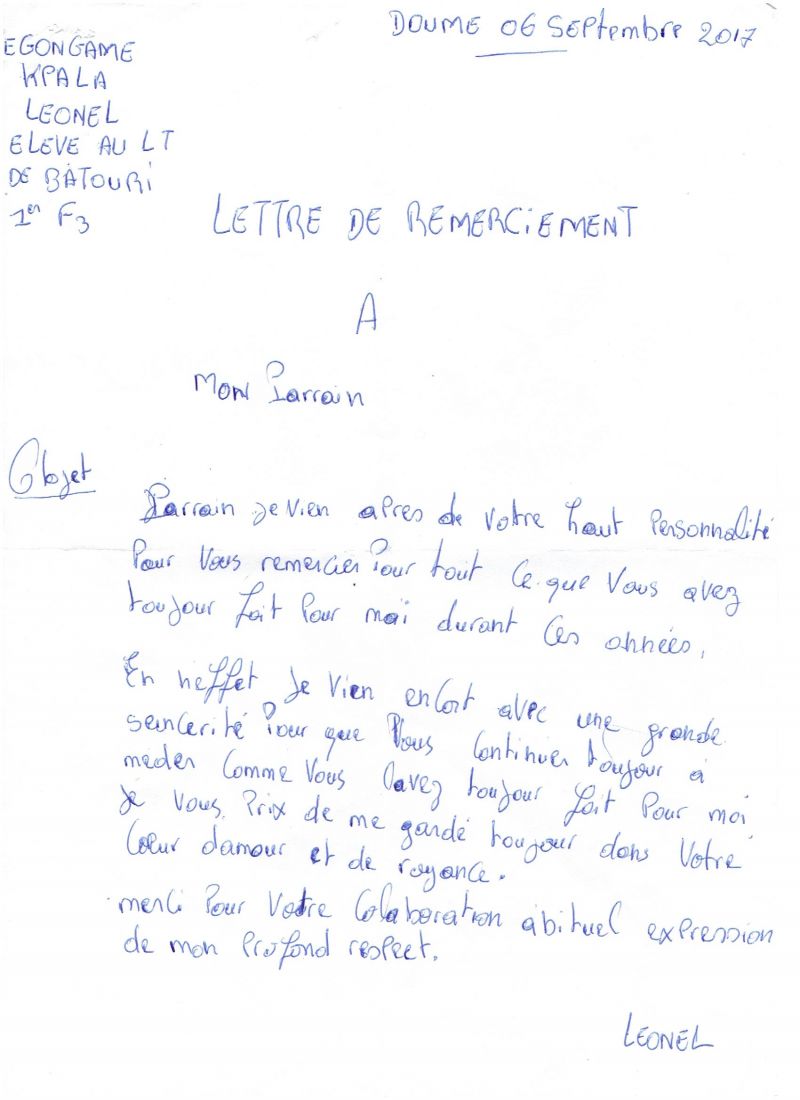 DOUME 06 SEPtembre 2017
EGONGAME
KPALA
LEONEL
ELEVE AU LT
DE BATOURi
1er F3
LETTRE DE REMERCiEMENT
A
Mon Parrain
Objet
Parrain je vien apres de votre haut Personnalité
Pour Vous remercier Pour tout ce que Vous avez
toujour fait Pour moi durant ces années.
En neffet je vien encort avec une grande
seincerité Pour que Vous continuer toujour a
meder comme Vous lavez toujour fait Pour moi
je vous Prix de me gardé toujour dans Votre
Cœur damour et de royance.
merci Pour Votre Colaboration abituel expression
de mon Profond respect.
LEONEL